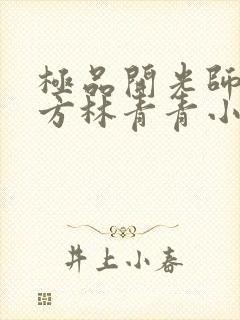 極品開光師
方林青青小
井上小春